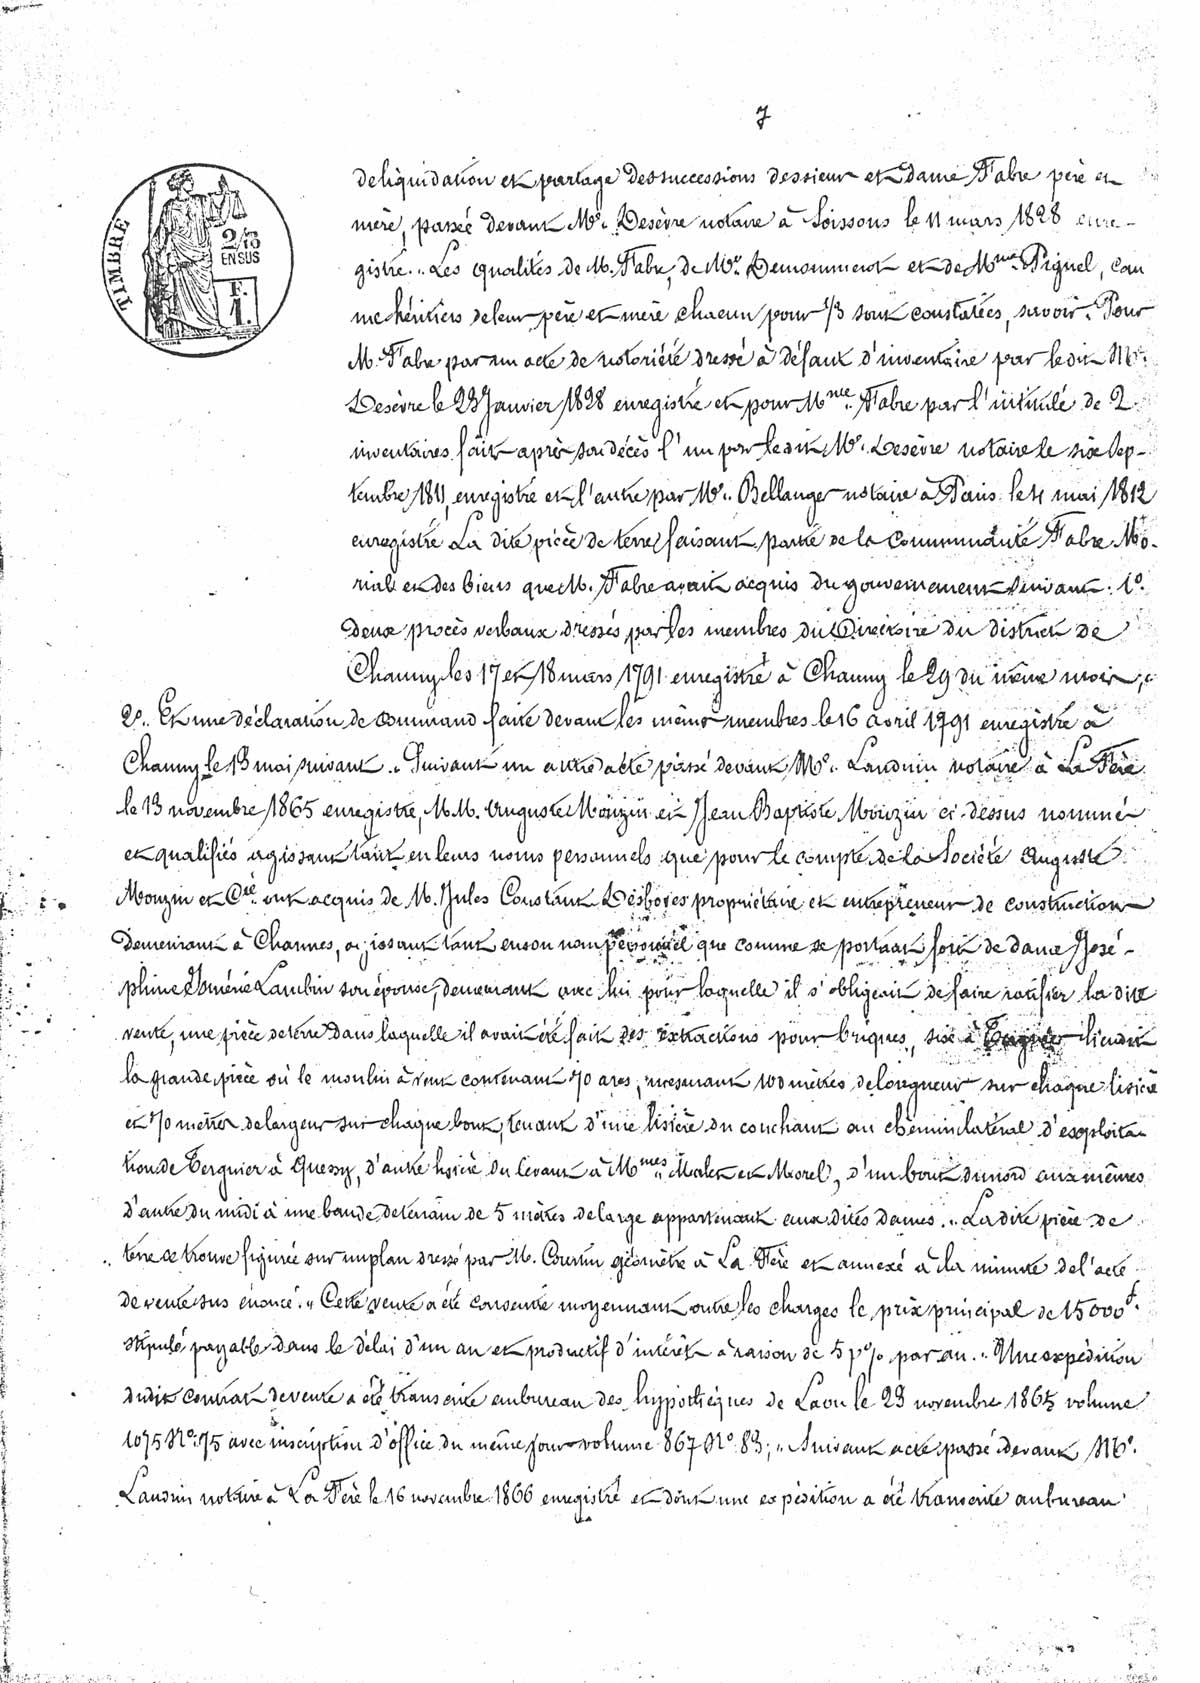 7
TIMBRE
2/10
EN SUS
F.
1.
de liquidation et partage des successions des sieur et dame Fabre père et
mère, passé devant Me. Desèvre notaire à Soissons le 11 mars 1828 enre-
gistré. „ Les qualités de M. Fabre, de Me Demommerot et de Mme Pignel, com
me héritiers de leur père et mère chacun pour 1/3 sont constatées, savoir. Pour
M. Fabre par un acte de notoriété dressé à défaut d'inventaire par le dit Me.
Desèvre le 23 Janvier 1828 enregistré et pour Mme. Fabre par l'intitulé de 2
inventaires fait après son décès l'un par le dit Me. Desèvre notaire le six Sep-
tembre 1811, enregistré et l'autre par Me. Bellanger notaire à Paris le 4 mai 1812
enregistré La dite pièce de terre faisant partie de la Communauté Fabre Mo-
rial et des biens que M. Fabre avait acquis du gouvernement suivant : 1o.
deux procès verbaux dressés par les membres du Directoire du district de
Chauny les 17 et 18 mars 1791 enregistré à Chauny le 29 du même mois,
2o. Et une déclaration de command faite devant les même membres le 16 avril 1791 enregistré à
Chauny le 13 mai suivant. „ Suivant un autre acte passé devant Me. Landuin notaire à La Fère
le 13 novembre 1865 enregistré, M.M. Auguste Mouzin et Jean Baptiste Mouzin ci-dessus nommé
et qualifiés agissant tant en leurs noms personnels que pour le compte de la Société Auguste
Mouzin et Cie ont acquis de M. Jules Constant Desboves propriétaire et entrepreneur de construction
demeurant à Charmes, agissant tant en son nom personnel que comme se portant fort de dame José-
phine Isménie Lambin son épouse, demeurant avec lui pour laquelle il s'obligeait de faire ratifier la dite
vente, une pièce de terre dans laquelle il avait été fait des extractions pour briques, sise à Tergnier lieudit
la grande pièce où le moulin à vent contenant 70 ares, mesurant 100 mètres de longueur sur chaque lisière
et 70 mètres de largeur sur chaque bout, tenant d'une lisière du couchant au chemin latéral d'exploita-
tion de Tergnier à Quessy, d'autre lisière du levant à Mmes. Malet et Morel, d'un bout du nord aux mêmes
d'autre du midi à une bande de terrain de 5 mètres de large appartenant aux dites dames. „ La dite pièce de
terre se trouve figurée sur un plan dressé par M. Courtin géomètre à La Fère et annexé à la minute de l'acte
de vente sus énoncé. „ Cette vente a été consentie moyennant outre les charges le prix principal de 15000f.
stipulé payable dans le délai d'un an et productif d'intérêt à raison de 5 p% par an. „ Une expédition
dudit contrat de vente a été transcrite au bureau des hypothèques de Laon le 23 novembre 1865 volume
1075 No. 75 avec inscription d'office du même jour volume 867 No. 83; „ Suivant acte passé devant Me.
Landuin notaire à La Fère le 16 novembre 1866 enregistré et dont une expédition a été transcrite au bureau